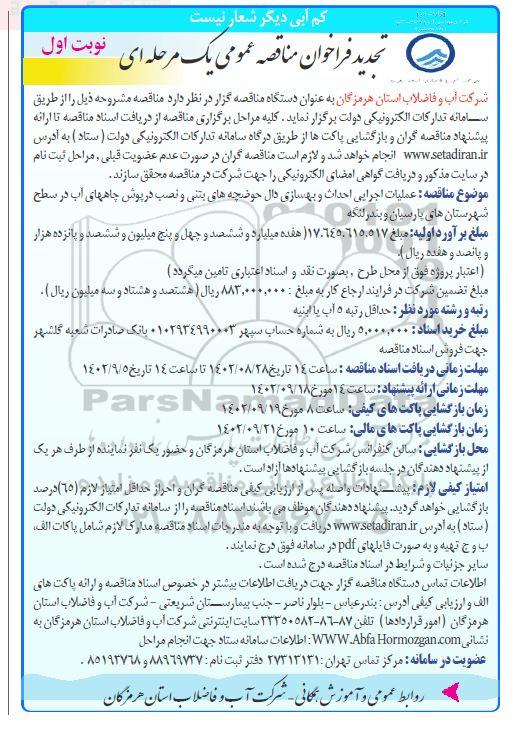 کم آبی دیگر شعار نیست
نوبت اول
تجدید فراخوان مناقصه عمومی یک مرحله ای
شرکت آب و فاضلاب استان هرمزگان به عنوان دستگاه مناقصه گزار در نظر دارد مناقصه مشروحه ذیل را از طریق
سامانه تدارکات الکترونیکی دولت برگزار نماید . کلیه مراحل برگزاری مناقصه از دریافت اسناد مناقصه تا ارائه
پیشنهاد مناقصه گران و بازگشایی پاکت ها از طریق درگاه سامانه تدارکات الکترونیکی دولت ( ستاد ) به آدرس
www.setadiran.ir انجام خواهد شد و لازم است مناقصه گران در صورت عدم عضویت قبلی , مراحل ثبت نام
در سایت مذکور و دریافت گواهی امضای الکترونیکی را جهت شرکت در مناقصه محقق سازند.
موضوع مناقصه : عملیات اجرایی احداث و بهسازی دال حوضچه های بتنی و نصب درپوش چاههای آب در سطح
شهرستان های پارسیان و بندرلنگه
مبلغ برآورد اولیه: مبلغ ۱۷.۶۴۵.۶۱۵.۵۱۷( هفده میلیارد و ششصد و چهل و پنج میلیون و ششصد و پانزده هزار
و پانصد و هفده ریال).
( اعتبار پروژه فوق از محل طرح , بصورت نقد و اسناد اعتباری تامین میگردد )
مبلغ تضمین شرکت در فرایند ارجاع کار به مبلغ : ۸۸۳,۰۰۰,۰۰۰ ریال ( هشتصد و هشتاد و سه میلیون ریال ).
رتبه و رشته مورد نظر : حداقل رتبه ۵ آب یا ابنیه
مبلغ خرید اسناد : ۵,۰۰۰,۰۰۰ ریال به شماره حساب سپهر ۰۱۰۲۹۳۴۹۹۰۰۰۳ بانک صادرات شعبه گلشهر
جهت فروش اسناد مناقصه
مهلت زمانی دریافت اسناد مناقصه : ساعت ۱۴ تاریخ ۱۴۰۲/۰۸/۲۸ تا ساعت ۱۴ تاریخ ۱۴۰۲/۹/۵
مهلت زمانی ارائه پیشنهاد : ساعت ۱۴ مورخ ۱۴۰۲/۰۹/۱۸
زمان بازگشایی پاکت های کیفی: ساعت ۸ مورخ ۱۴۰۲/۰۹/۱۹
زمان بازگشایی پاکت های مالی: ساعت ۱۰ مورخ ۱۴۰۲/۰۹/۲۱
محل بازگشایی : سالن کنفرانس شرکت آب و فاضلاب استان هرمزگان و حضور یک نفر نماینده از طرف هر یک
از پیشنهاد دهندگان در جلسه بازگشایی پیشنهادها آزاد است .
امتیاز کیفی لازم : پیشنهادات واصله پس از ارزیابی کیفی مناقصه گران و احراز حداقل امتیاز لازم (۶۵)درصد
بازگشایی خواهد گردید. پیشنهاد دهندگان موظف می باشند اسناد مناقصه را از سامانه تدارکات الکترونیکی دولت
( ستاد ) به آدرس www.setadiran.ir دریافت و با توجه به مندرجات اسناد مناقصه مدارک لازم شامل پاکات الف,
ب و ج تهیه و به صورت فایلهای pdf در سامانه فوق درج نمایند .
سایر جزئیات و شرایط در اسناد مناقصه درج شده است .
اطلاعات تماس دستگاه مناقصه گزار جهت دریافت اطلاعات بیشتر در خصوص اسناد مناقصه و ارائه پاکت های
الف و ارزیابی کیفی آدرس : بندرعباس - بلوار ناصر - جنب بیمارستان شریعتی - شرکت آب و فاضلاب استان
هرمزگان ( امور قراردادها ) تلفن ۸۷-۸۶-۳۳۳۵۰۵۸۲ سایت اینترنتی شرکت آب و فاضلاب استان هرمزگان به
نشانی WWW.AbfaHormozgan.com : اطلاعات سامانه ستاد جهت انجام مراحل
عضویت در سامانه : مرکز تماس تهران : ۲۷۳۱۳۱۳۱ دفتر ثبت نام : ۸۸۹۶۹۷۳۷ و ۸۵۱۹۳۷۶۸ .
روابط عمومی و آموزش همگانی - شرکت آب و فاضلاب استان هرمزگان
ParsNamadData